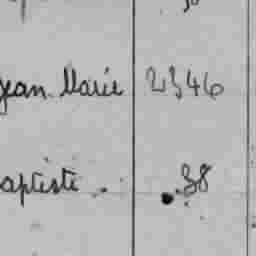 Jean Marie 2346
aptiste . 38